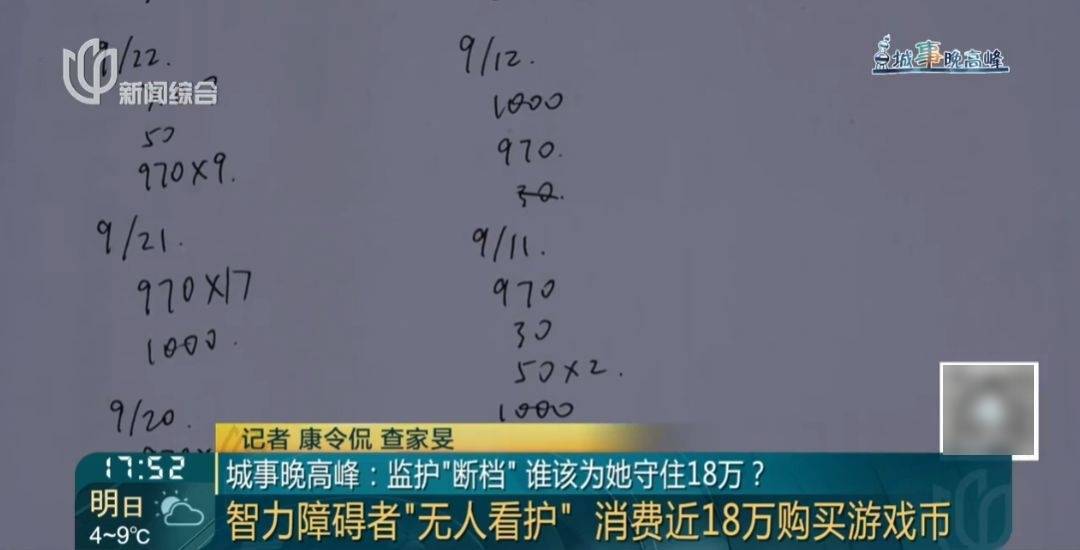 新闻综合
城事晚高峰
9/22.
50
970×9.
9/21.
970×17
1000.
9/20.
9/12.
1000
970.
30.
9/11.
970
30
50×2.
1000
记者 康令侃 查家旻
17:52
明日
4~9℃
城事晚高峰：监护"断档" 谁该为她守住18万？
智力障碍者"无人看护" 消费近18万购买游戏币